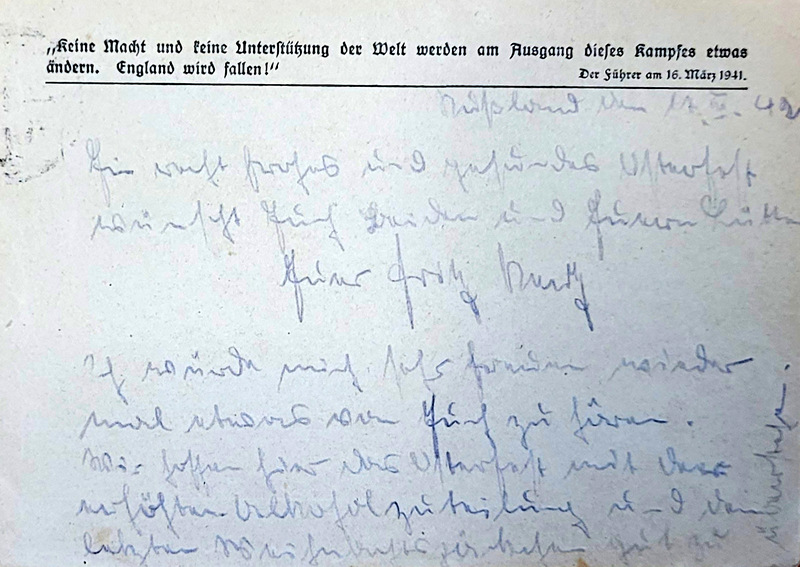 „Keine Macht und keine Unterstützung der Welt werden am Ausgang dieses Kampfes etwas
ändern. England wird fallen!“
Der Führer am 16. März 1941.
Rußland den
Ein recht frohes und gesundes Osterfest
wünscht Euch Beiden und Euern
Euer Fritz
Ich würde mich sehr freuen wieder
mal etwas von Euch zu hören.
Wir hoffen hier das Osterfest mit der
erhöhten Alkoholzuteilung und den
letzten gut zu
überstehen.